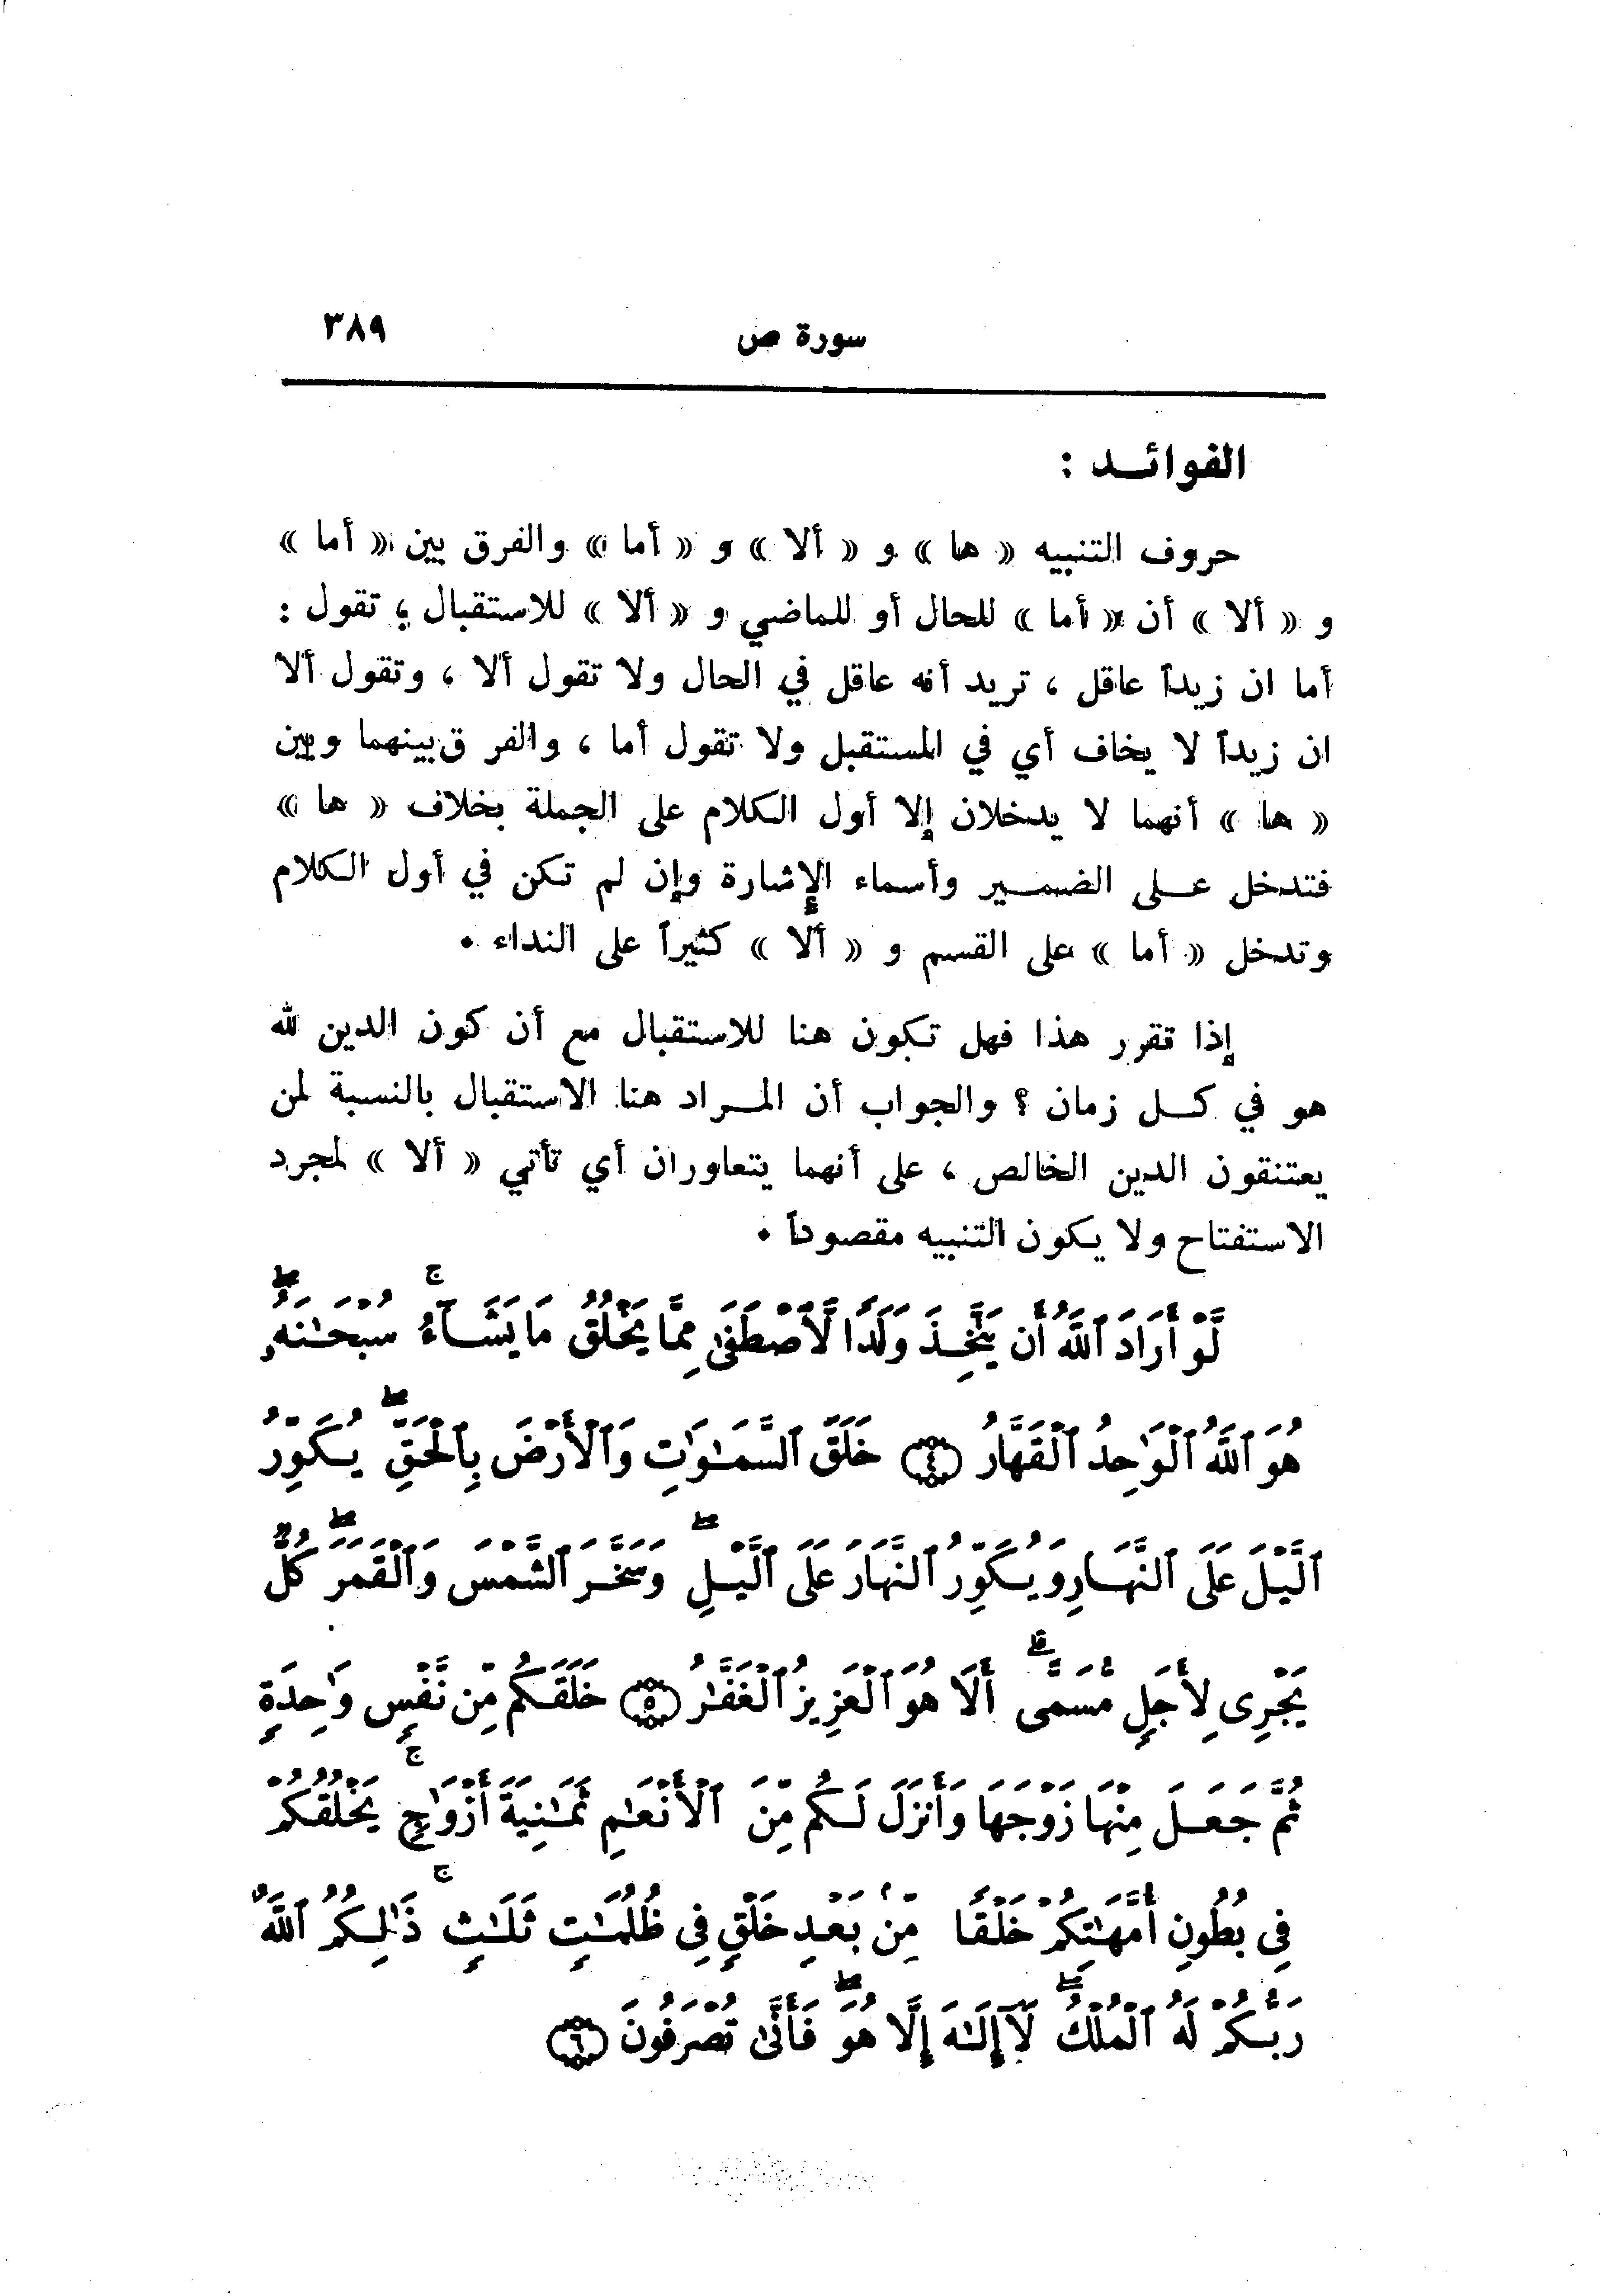 سورة ص ٣٨٩
الفوائد :
حروف التنبيه « ها » و « ألا » و « أما » والفرق بين « أما »
و « ألا » أن « أما » للحال أو للماضي و « ألا » للاستقبال ، تقول :
أما ان زيداً عاقل ، تريد أنه عاقل في الحال ولا تقول ألا ، وتقول ألا
ان زيداً لا يخاف أي في المستقبل ولا تقول أما ، والفر ق بينهما وبين
« ها » أنهما لا يدخلان إلا أول الكلام على الجملة بخلاف « ها »
فتدخل على الضمير وأسماء الإشارة وإن لم تكن في أول الكلام
وتدخل « أما » على القسم و « ألا » كثيراً على النداء .
إذا تقرر هذا فهل تكون هنا للاستقبال مع أن كون الدين لله
هو في كل زمان ؟ والجواب أن المراد هنا الاستقبال بالنسبة لمن
يعتنقون الدين الخالص ، على أنهما يتعاوران أي تأتي « ألا » لمجرد
الاستفتاح ولا يكون التنبيه مقصوداً .
لَّوْ أَرَادَ ٱللَّهُ أَن يَتَّخِذَ وَلَدًا لَّٱصْطَفَىٰ مِمَّا يَخْلُقُ مَا يَشَآءُ ۚ سُبْحَـٰنَهُۥ ۖ
هُوَ ٱللَّهُ ٱلْوَٰحِدُ ٱلْقَهَّارُ ﴿٤﴾ خَلَقَ ٱلسَّمَـٰوَٰتِ وَٱلْأَرْضَ بِٱلْحَقِّ ۖ يُكَوِّرُ
ٱلَّيْلَ عَلَى ٱلنَّهَارِ وَيُكَوِّرُ ٱلنَّهَارَ عَلَى ٱلَّيْلِ ۖ وَسَخَّرَ ٱلشَّمْسَ وَٱلْقَمَرَ ۖ كُلٌّ
يَجْرِى لِأَجَلٍ مُّسَمًّى ۗ أَلَا هُوَ ٱلْعَزِيزُ ٱلْغَفَّـٰرُ ﴿٥﴾ خَلَقَكُم مِّن نَّفْسٍ وَٰحِدَةٍ
ثُمَّ جَعَلَ مِنْهَا زَوْجَهَا وَأَنزَلَ لَكُم مِّنَ ٱلْأَنْعَـٰمِ ثَمَـٰنِيَةَ أَزْوَٰجٍ ۚ يَخْلُقُكُمْ
فِى بُطُونِ أُمَّهَـٰتِكُمْ خَلْقًا مِّنۢ بَعْدِ خَلْقٍ فِى ظُلُمَـٰتٍ ثَلَـٰثٍ ۚ ذَٰلِكُمُ ٱللَّهُ
رَبُّكُمْ لَهُ ٱلْمُلْكُ ۖ لَآ إِلَـٰهَ إِلَّا هُوَ ۖ فَأَنَّىٰ تُصْرَفُونَ ﴿٦﴾